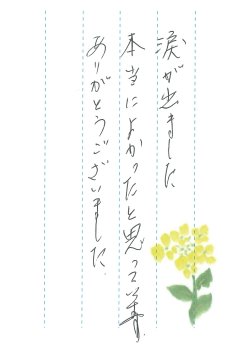 涙が出ました
本当によかったと思って居ます
ありがとうございました